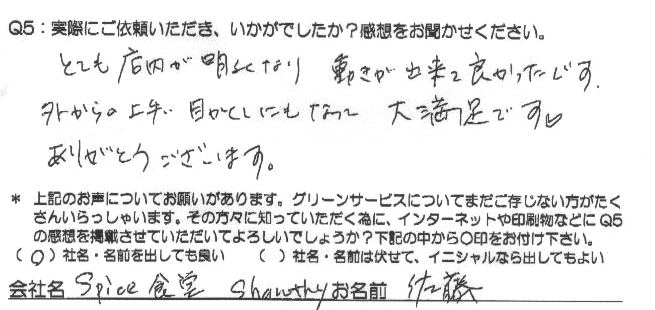 Q5：実際にご依頼いただき、いかがでしたか？感想をお聞かせください。
とても店内が明るくなり 動きが出来て良かったです.
外からの上手い目かくしにもなって 大満足です♡
ありがとうございます。
* 上記のお声についてお願いがあります。グリーンサービスについてまだご存じない方がたく
さんいらっしゃいます。その方々に知っていただく為に、インターネットや印刷物などにQ5
の感想を掲載させていただいてよろしいでしょうか？下記の中から○印をお付け下さい。
(○) 社名・名前を出しても良い ( ) 社名・名前は伏せて、イニシャルなら出してもよい
会社名 Spice 食堂 Shanthy お名前 佐藤